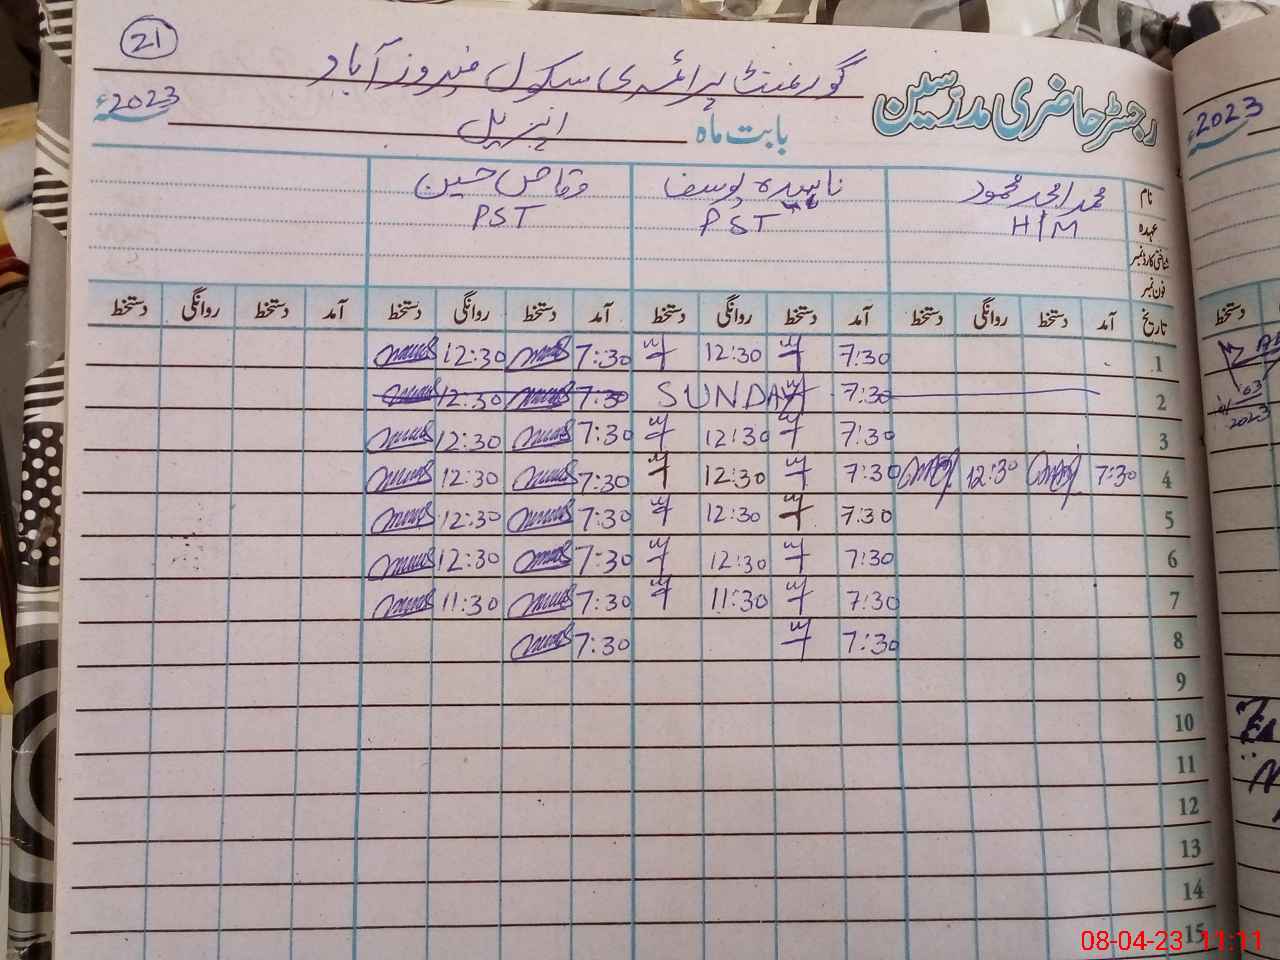 21
گورنمنٹ پرائمری سکول فیروز آباد
رجسٹر حاضری مدرسین
بابت ماہ اپریل 2023ء
نام محمد امجد محمود ناہیدہ یوسف وقاص حسین
عہدہ H/M PST PST
شناختی کارڈ نمبر
فون نمبر
تاریخ آمد دستخط روانگی دستخط آمد دستخط روانگی دستخط آمد دستخط روانگی دستخط آمد دستخط روانگی دستخط
1 7:30 12:30 7:30 12:30
2 7:30 SUNDAY 7:30 12:30
3 7:30 12:30 7:30 12:30
4 7:30 12:30 7:30 12:30 7:30 12:30
5 7:30 12:30 7:30 12:30
6 7:30 12:30 7:30 12:30
7 7:30 11:30 7:30 11:30
8 7:30 7:30
9
10
11
12
13
14
15
2023ء
دستخط
03
2023
08-04-23 11:11